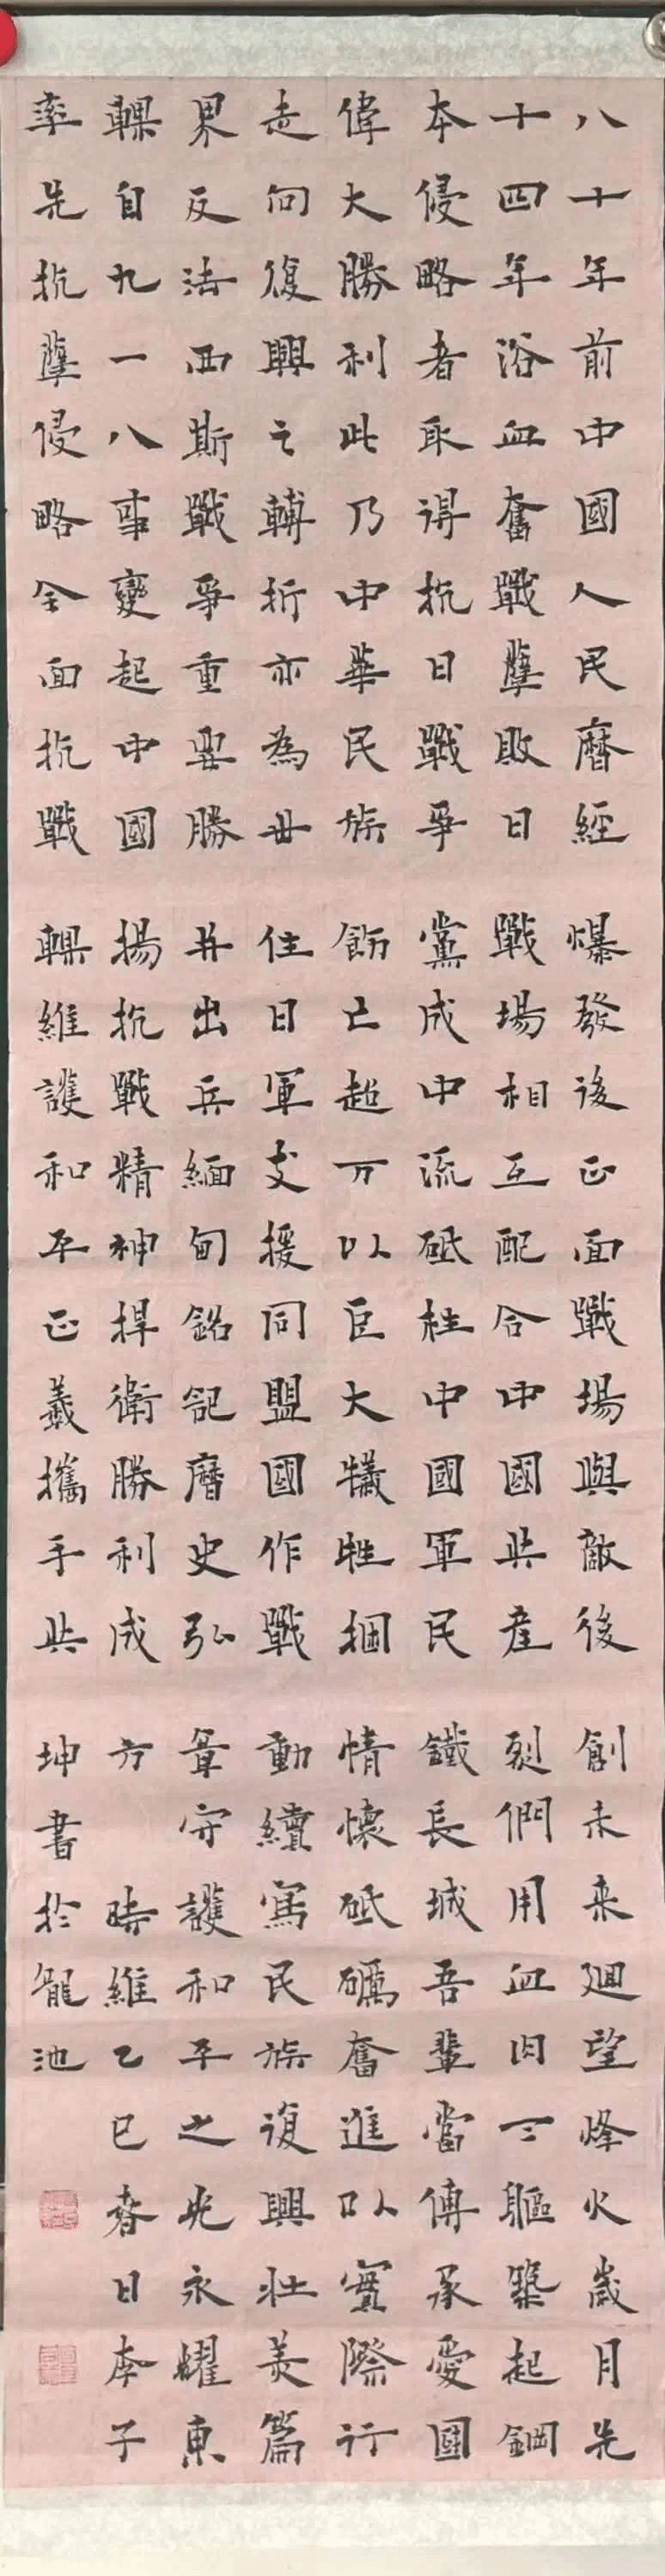 八十年前中國人民曆經
十四年浴血奮戰擊敗日
本侵略者取得抗日戰爭
偉大勝利此乃中華民族
走向復興之轉折亦為世
界反法西斯戰爭重要勝
輠自九一八事變起中國
率先抗擊侵略全面抗戰
爆發後正面戰場與敵後
戰場相互配合中國共產
黨成中流砥柱中國軍民
飭亡超万以巨大犧牲捆
住日軍支援同盟國作戰
并出兵緬甸銘記曆史弘
揚抗戰精神捍衛勝利成
輠維護和平正義攜手共
創未来迴望烽火歲月先
烈們用血肉之軀築起鋼
鐵長城吾輩當傳承愛國
情懷砥礪奮進以實際行
動續寫民族復興壯美篇
章守護和平之光永耀東
方 時維乙巳春日李子
坤書於龍池